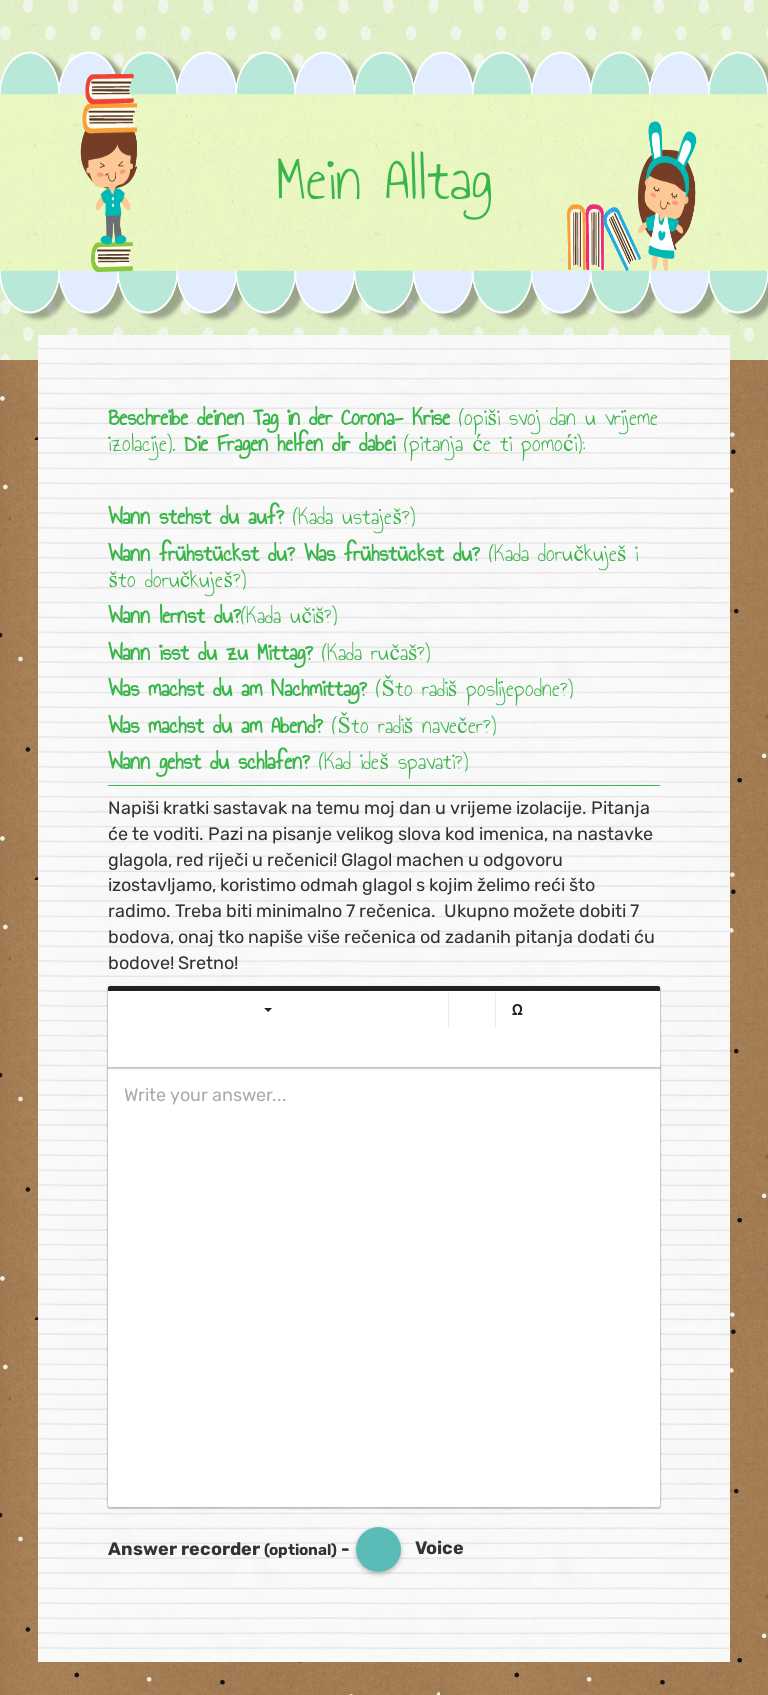 Mein Alltag
Beschreibe deinen Tag in der Corona- Krise (opiši svoj dan u vrijeme
izolacije). Die Fragen helfen dir dabei (pitanja će ti pomoći):
Wann stehst du auf? (Kada ustaješ?)
Wann frühstückst du? Was frühstückst du? (Kada doručkuješ i
što doručkuješ?)
Wann lernst du?(Kada učiš?)
Wann isst du zu Mittag? (Kada ručaš?)
Was machst du am Nachmittag? (Što radiš poslijepodne?)
Was machst du am Abend? (Što radiš navečer?)
Wann gehst du schlafen? (Kad ideš spavati?)
Napiši kratki sastavak na temu moj dan u vrijeme izolacije. Pitanja
će te voditi. Pazi na pisanje velikog slova kod imenica, na nastavke
glagola, red riječi u rečenici! Glagol machen u odgovoru
izostavljamo, koristimo odmah glagol s kojim želimo reći što
radimo. Treba biti minimalno 7 rečenica.  Ukupno možete dobiti 7
bodova, onaj tko napiše više rečenica od zadanih pitanja dodati ću
bodove! Sretno!
Ω
Write your answer...
Answer recorder (optional) - Voice